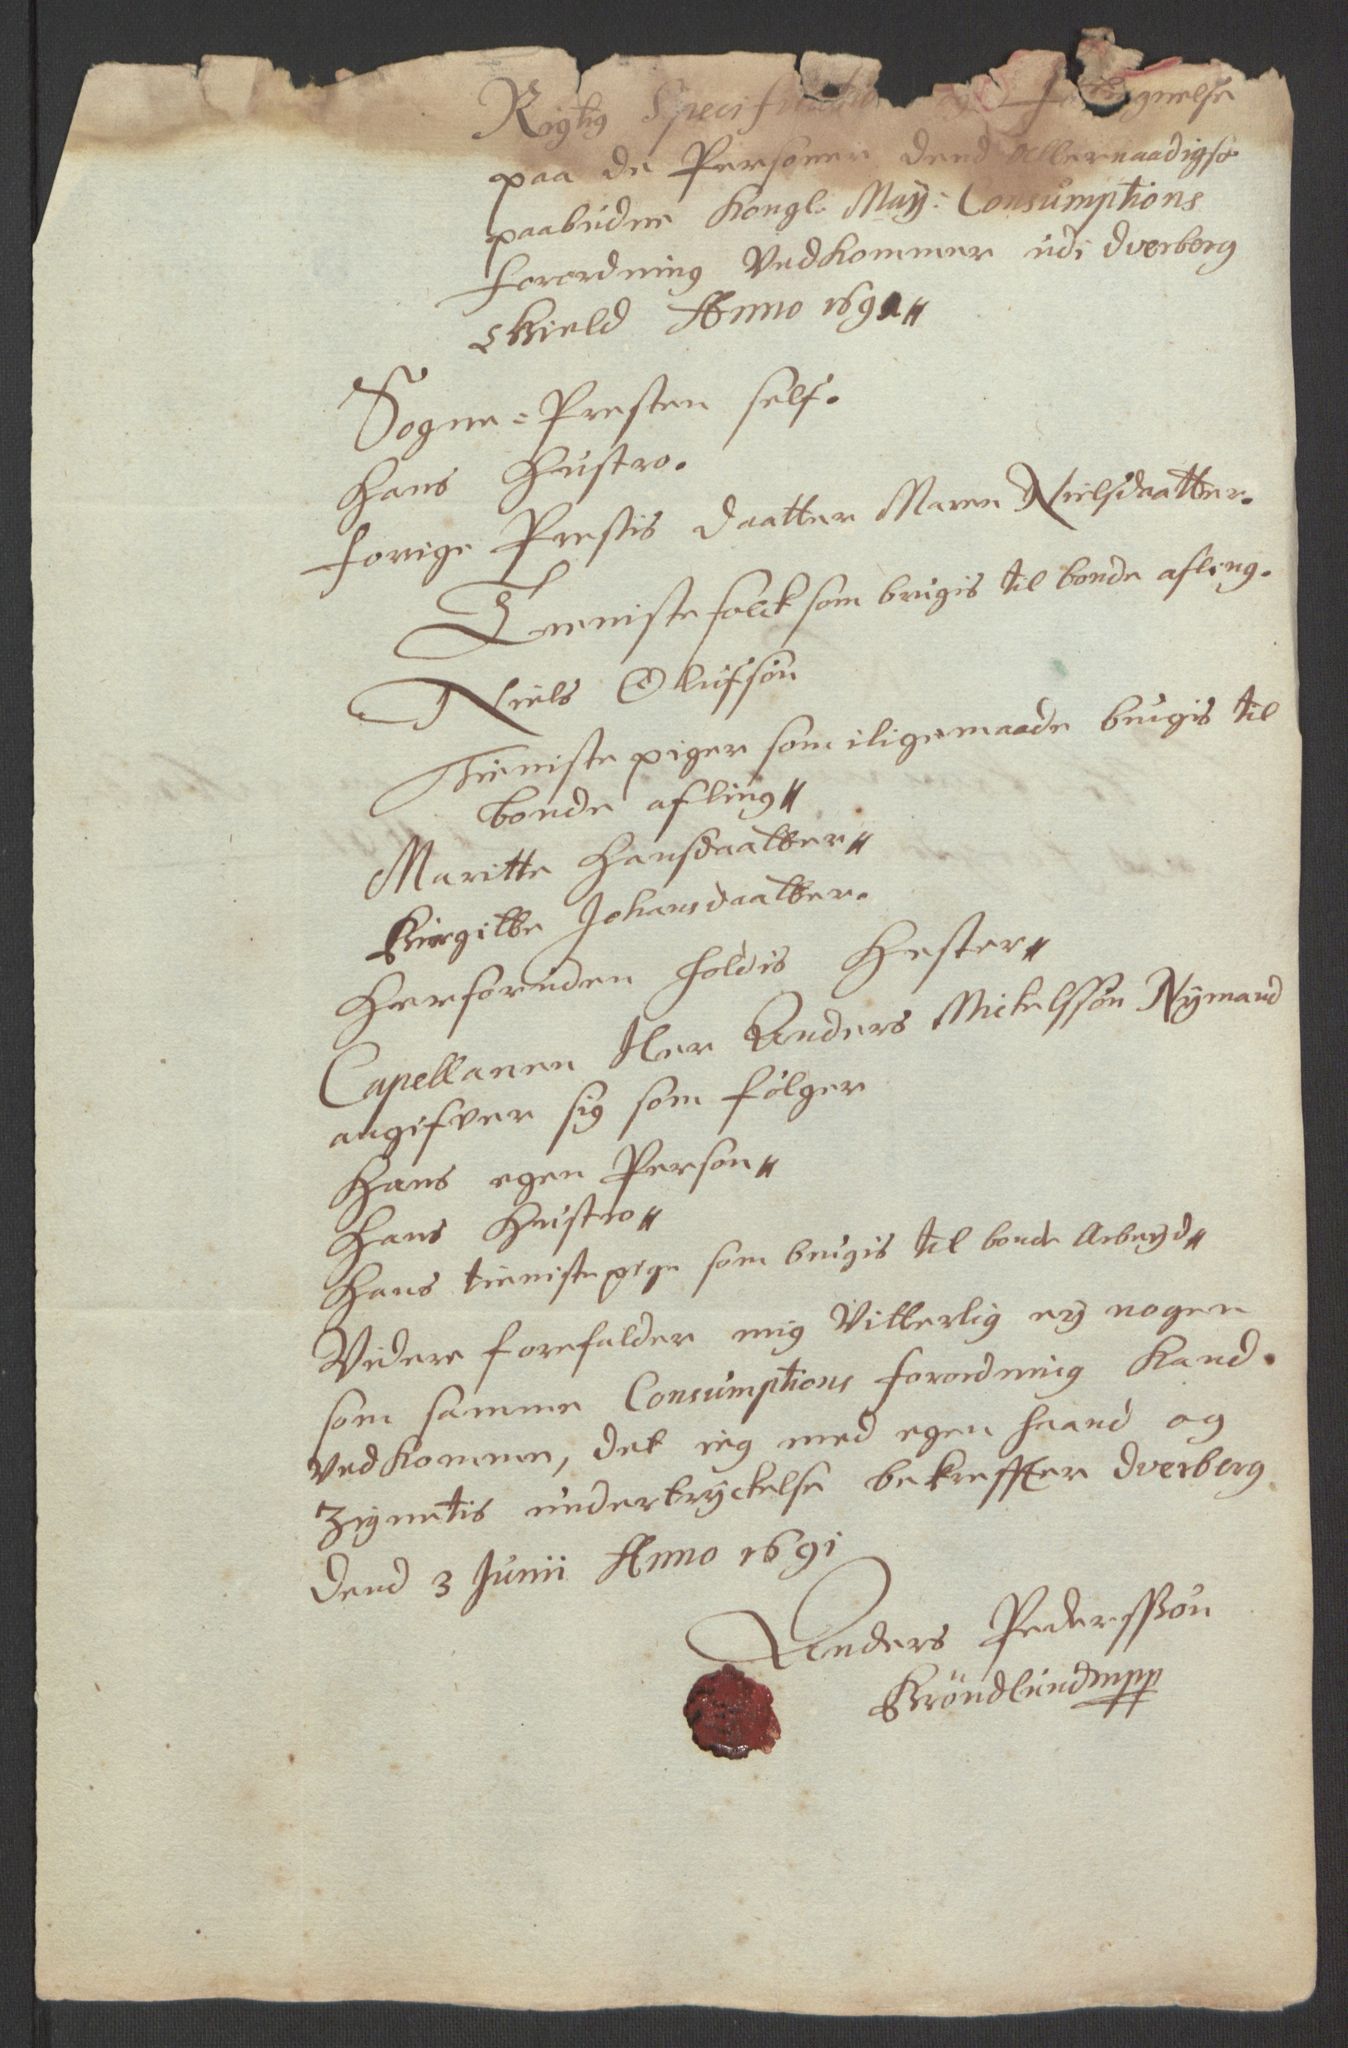 Rigtig Specification og Fortegnelse
paa de Personer dend Allernaadigste
paabudne Kongl: May: Consumptions
forordning Vedkommer udi Dverberg
Gield Anno 1691
Sogne-Presten self.
Hans Hustro.
forige Prestis daatter Maren Nielsdaatter.
Tieniste folck som brugis til bonde afling.
Niels Olufsøn
Tieniste piger som iligemaade brugis til
bonde afling
Maritte Hansdaatter
Birgitte Johansdaatter.
Herforuden holdis Hester
Capellanen Her Anders Mickelssøn Nÿmand
angifver sig som følger
Hans egen Person
Hans Hustro
Hans tienistepige som brugis til bonde Arbeÿd
Videre forefalder mig Vitterlig eÿ nogen
som samme Consumptions forordning Kand.
vedkomme, det ieg med egen haand og
Zignetis undertrÿckelse bekreffter Dverberg
Dend 3 Junii Anno 1691
Anders Pederssøn
Brøndlund mpp